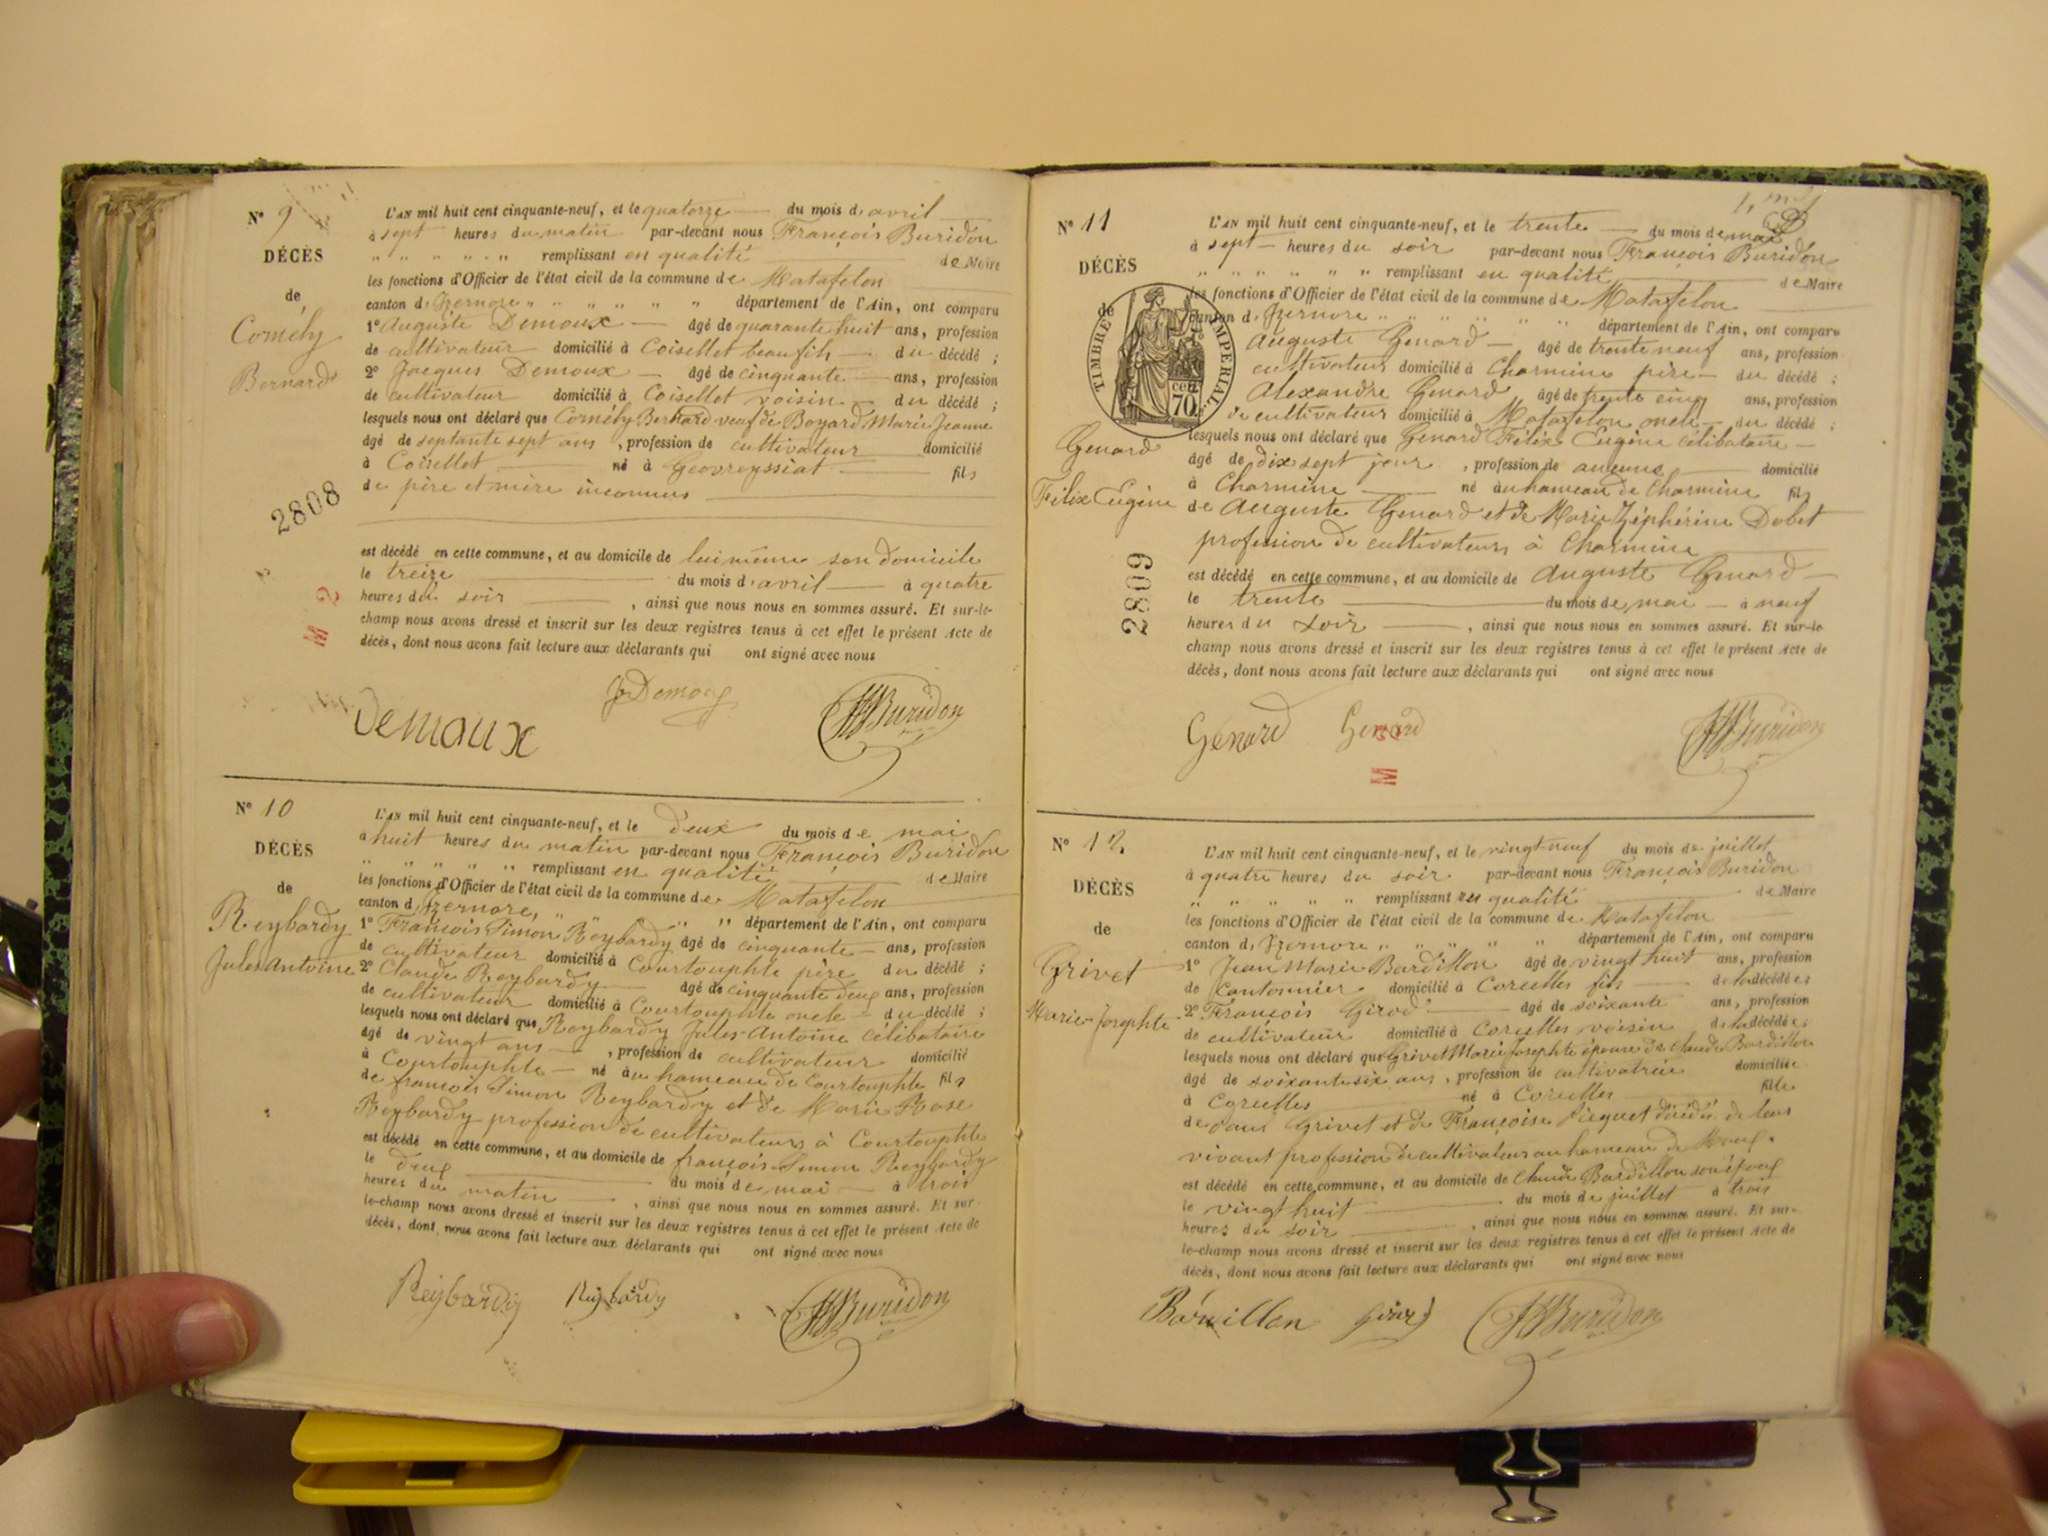 N° 9
DÉCÈS
de
Comély
Bernard
2808
M 2
L'AN mil huit cent cinquante-neuf, et le quatorze du mois d'avril
à sept heures du matin par-devant nous François Buridon
" " " " " remplissant en qualité de Maire
les fonctions d'Officier de l'état civil de la commune de Matafelon
canton d'Izernore " " " " " " département de l'Ain, ont comparu
1° Auguste Demoux âgé de quarante huit ans, profession
de cultivateur domicilié à Coisellet beau fils du décédé ;
2° Jacques Demoux âgé de cinquante ans, profession
de cultivateur domicilié à Coisellet voisin du décédé ;
lesquels nous ont déclaré que Comély Bernard veuf de Boyard Marie Jeanne
âgé de septante sept ans , profession de cultivateur domicilié
à Coisellet né à Geovreyssiat fils
de père et mère inconnus
est décédé en cette commune, et au domicile de lui même son domicile
le treize du mois d'avril à quatre
heures du soir , ainsi que nous nous en sommes assuré. Et sur-le-
champ nous avons dressé et inscrit sur les deux registres tenus à cet effet le présent Acte de
décès, dont nous avons fait lecture aux déclarants qui ont signé avec nous
Demoux J Demoux Buridon
N° 10
DÉCÈS
de
Reybardy
Jules Antoine
L'AN mil huit cent cinquante-neuf, et le deux du mois de mai
à huit heures du matin par-devant nous François Buridon
" " " " " remplissant en qualité de Maire
les fonctions d'Officier de l'état civil de la commune de Matafelon
canton d'Izernore, " " " département de l'Ain, ont comparu
1° François Simon Reybardy âgé de cinquante ans, profession
de cultivateur domicilié à Courtouphle père du décédé ;
2° Claude Reybardy âgé de cinquante deux ans, profession
de cultivateur domicilié à Courtouphle oncle du décédé ;
lesquels nous ont déclaré que Reybardy Jules Antoine célibataire
âgé de vingt ans , profession de cultivateur domicilié
à Courtouphle né au hameau de Courtouphle fils
de françois Simon Reybardy et de Marie Rose
Reybardy profession de cultivateurs à Courtouphle
est décédé en cette commune, et au domicile de françois Simon Reybardy
le deux du mois de mai à trois
heures du matin , ainsi que nous nous en sommes assuré. Et sur-
le-champ nous avons dressé et inscrit sur les deux registres tenus à cet effet le présent Acte de
décès, dont nous avons fait lecture aux déclarants qui ont signé avec nous
Reybardy Reybardy Buridon
N° 11
DÉCÈS
de
TIMBRE IMPERIAL
cen. 70
Genard
Félix Eugène
2809
L'AN mil huit cent cinquante-neuf, et le trente du mois de mai
à sept heures du soir par-devant nous François Buridon
" " " " " " remplissant en qualité de Maire
les fonctions d'Officier de l'état civil de la commune de Matafelon
canton d'Izernore " " " " " " département de l'Ain, ont comparu
Auguste Genard âgé de trente neuf ans, profession
cultivateur domicilié à Charmine père du décédé ;
Alexandre Genard âgé de trente cinq ans, profession
de cultivateur domicilié à Matafelon oncle du décédé ;
lesquels nous ont déclaré que Genard Félix Eugène célibataire
âgé de dix sept jours , profession de aucune domicilié
à Charmine né au hameau de Charmine fils
de Auguste Genard et de Marie Zéphérine Dobet
profession de cultivateurs à Charmine
est décédé en cette commune, et au domicile de Auguste Genard
le trente du mois de mai à neuf
heures du soir , ainsi que nous nous en sommes assuré. Et sur-le-
champ nous avons dressé et inscrit sur les deux registres tenus à cet effet le présent Acte de
décès, dont nous avons fait lecture aux déclarants qui ont signé avec nous
Génard Genard Buridon
M
N° 12
DÉCÈS
de
Grivet
Marie-Josephte
L'AN mil huit cent cinquante-neuf, et le vingt neuf du mois de juillet
à quatre heures du soir par-devant nous François Buridon
" " " " " remplissant en qualité de Maire
les fonctions d'Officier de l'état civil de la commune de Matafelon
canton d'Izernore " " " " " département de l'Ain, ont comparu
1° Jean Marie Bardillon âgé de vingt huit ans, profession
de Cantonnier domicilié à Corcelles fils de la décédée ;
2° François Girod âgé de soixante ans, profession
de cultivateur domicilié à Corcelles voisin de la décédée ;
lesquels nous ont déclaré que Grivet Marie Josephte épouse de Claude Bardillon
âgé de soixante six ans , profession de cultivatrice domiciliée
à Corcelles né à Corcelles fille
de Grivet et de Françoise Picquet décédés de leur
vivant profession de cultivateurs au hameau de
est décédé en cette commune, et au domicile de Claude Bardillon son époux
le vingt huit du mois de juillet à trois
heures du soir , ainsi que nous nous en sommes assuré. Et sur-
le-champ nous avons dressé et inscrit sur les deux registres tenus à cet effet le présent Acte de
décès, dont nous avons fait lecture aux déclarants qui ont signé avec nous
Girod Buridon